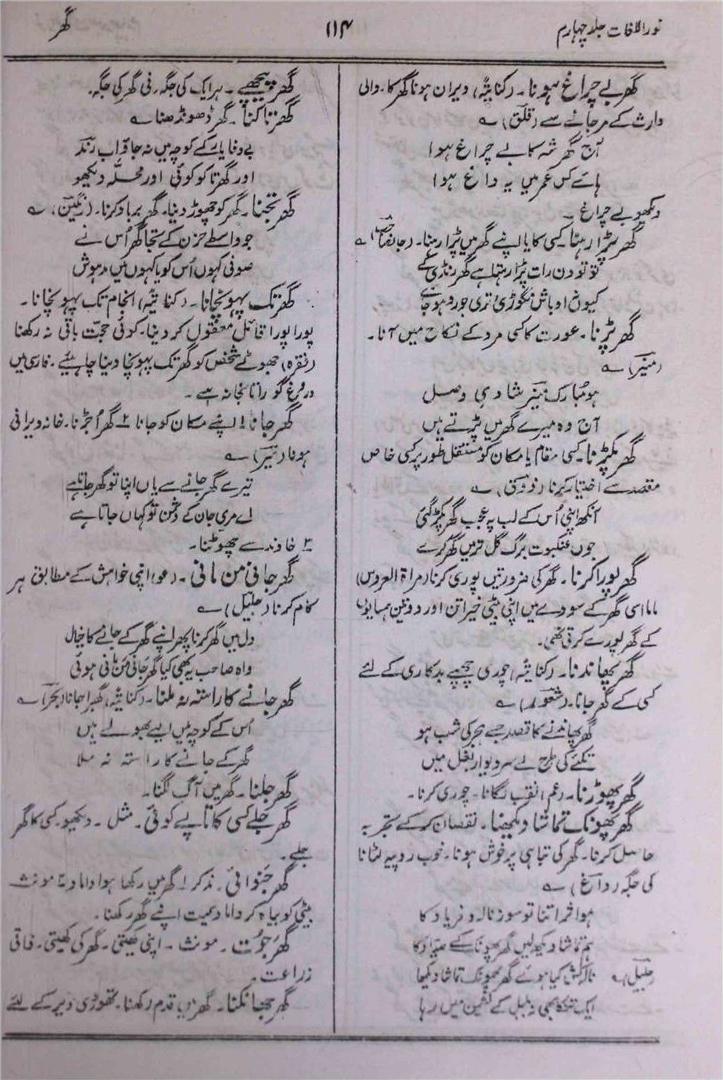 نور اللغات جلد چہارم
۱۱۴
گھر
گھر بے چراغ ہونا۔ (کنایۃً) ویران ہونا گھر کا۔ والی
وارث کے مر جانے سے (قلق) ؎
آج گھر شہ کا بے چراغ ہوا
ہائے کس عمر میں یہ داغ ہوا
دیکھو بے چراغ۔
گھر پڑا رہنا کسی کا یا اپنے گھر میں پڑا رہنا۔ (جانصاحب) ؎
تو تو دن رات پڑا رہتا ہے گھر رنڈی کے
کیوں نہ اوباش نگوڑی تری جورو ہو جائے
گھر پڑنا۔ عورت کا کسی مرد کے نکاح میں آنا۔
(منیر) ؎
ہو مبارک منیر شادی وصل
آج وہ میرے گھر میں پڑتے ہیں
گھر پکڑنا کسی مقام یا مکان کو مستقل طور پر کسی خاص
مقصد سے اختیار کرنا (ذوق) ؎
آنکھ اپنی اُس کے لب پہ عجب گھر پکڑ گئی
جوں عنکبوت برگ گل تر میں گھر کرے
گھر پورا کرنا۔ گھر کی ضرورتیں پوری کرنا (مراۃ العروس)
ماما اسی گھر کے سودے میں اپنی بیٹی خیراتن اور دو تین ہمسایوں
کے گھر پورے کرتی تھی۔
گھر پھاندنا۔ (کنایۃً) چوری چھپے بدکاری کے لئے
کسی کے گھر جانا۔ (شعور) ؎
گھر پھاندنے کا قصد جسے ہجر کی شب ہو
تکئے کی طرح لے سر دیوار بغل میں
گھر پھوڑنا۔ (عم) نقب لگانا۔ چوری کرنا۔
گھر پھونک تماشا دیکھنا۔ نقصان کر کے تجربہ
حاصل کرنا۔ گھر کی تباہی پر خوش ہونا۔ خوب روپیہ لٹانا
کی جگہ (داغ) ؎
ہوا ثمر اتنا تو سوز نالہ و فریاد کا
ہم تماشا دیکھ لیں گھر پھونک کے صیاد کا
(جلیل) ؎ نالہ کش کیا ہوئے گھر پھونک تماشا دیکھا
ایک تنکا بھی نہ بلبل کے نشیمن میں رہا
گھر پیچھے۔ ہر ایک کی جگہ۔ فی گھر کی جگہ۔
گھر تاکنا۔ گھر ڈھونڈھنا ؎
بے وفا یار کے کوچہ میں نہ جاؤ اب رند
اور گھر تاکو کوئی اور محلہ دیکھو
گھر تجنا۔ گھر کو چھوڑ دینا۔ گھر برباد کرنا۔ (رنگین) ؎
جو واسطے حزن کے تجا گھر اُس نے
صوفی کہوں اُس کو یا کہوں میں مدہوش
گھر تک پہونچانا۔ (کنایۃً) انجام تک پہونچانا۔
پورا پورا قائل معقول کر دینا۔ کوئی حجت باقی نہ رکھنا
(فقرہ) جھوٹے شخص کو گھر تک پہونچا دینا چاہیئے۔ فارسی میں
دروغ گو را تا بخانہ ہے۔
گھر جانا ۱ اپنے مکان کو جانا ۲ گھر اُجڑنا۔ خانہ ویرانی
ہونا (میر) ؎
تیرے گھر جانے سے یاں اپنا تو گھر جاتا ہے
اے مری جان کے دشمن تو کہاں جاتا ہے
۳ خاوند سے چھوٹنا۔
گھر جانی من مانی۔ (عو) اپنی خواہش کے مطابق ہر
کام کرنا (جلیل) ؎
دل میں گھر کرنا پھر اپنے گھر کے جانے کا خیال
واہ صاحب یہ بھی کیا گھر جانی من مانی ہوئی
گھر جانے کا راستہ نہ ملنا۔ (کنایۃً) گھبرا جانا (بحر) ؎
اس کے کوچہ میں ایسے بھولے ہیں
گھر کے جانے کا راستہ نہ ملا
گھر جلنا۔ گھر میں آگ لگنا۔
گھر جلے کسی کا تاپے کوئی۔ مثل۔ دیکھو کسی کا گھر
جلے۔
گھر جنوائی۔ مذکر۔ گھر میں رکھا ہوا داماد مونث
بیٹی کو بیاہ کر داماد سمیت اپنے گھر رکھنا۔
گھر جوت۔ مونث۔ اپنی کھیتی۔ گھر کی کھیتی۔ ذاتی
زراعت۔
گھر جھانکنا۔ گھر میں قدم رکھنا۔ تھوڑی دیر کے لئے